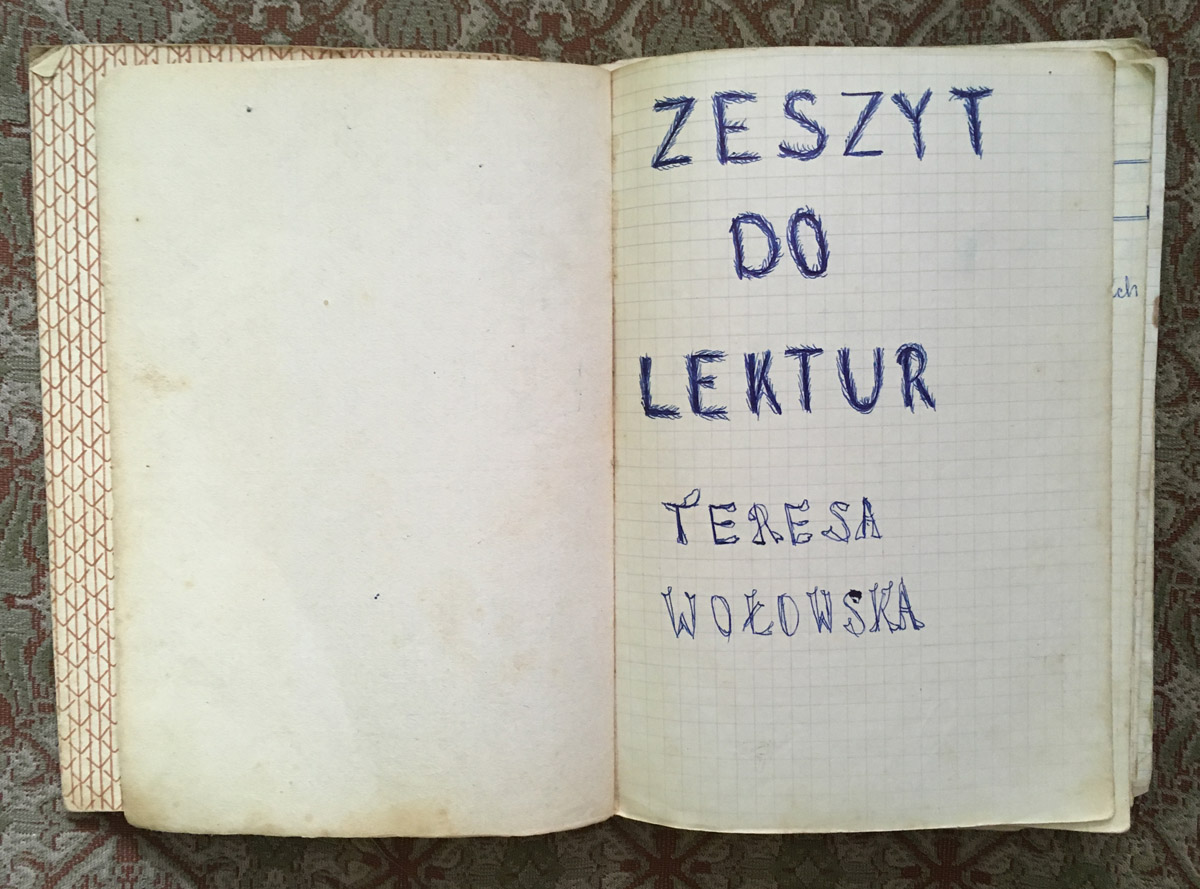 ZESZYT
DO
LEKTUR
TERESA
WOŁOWSKA
ch